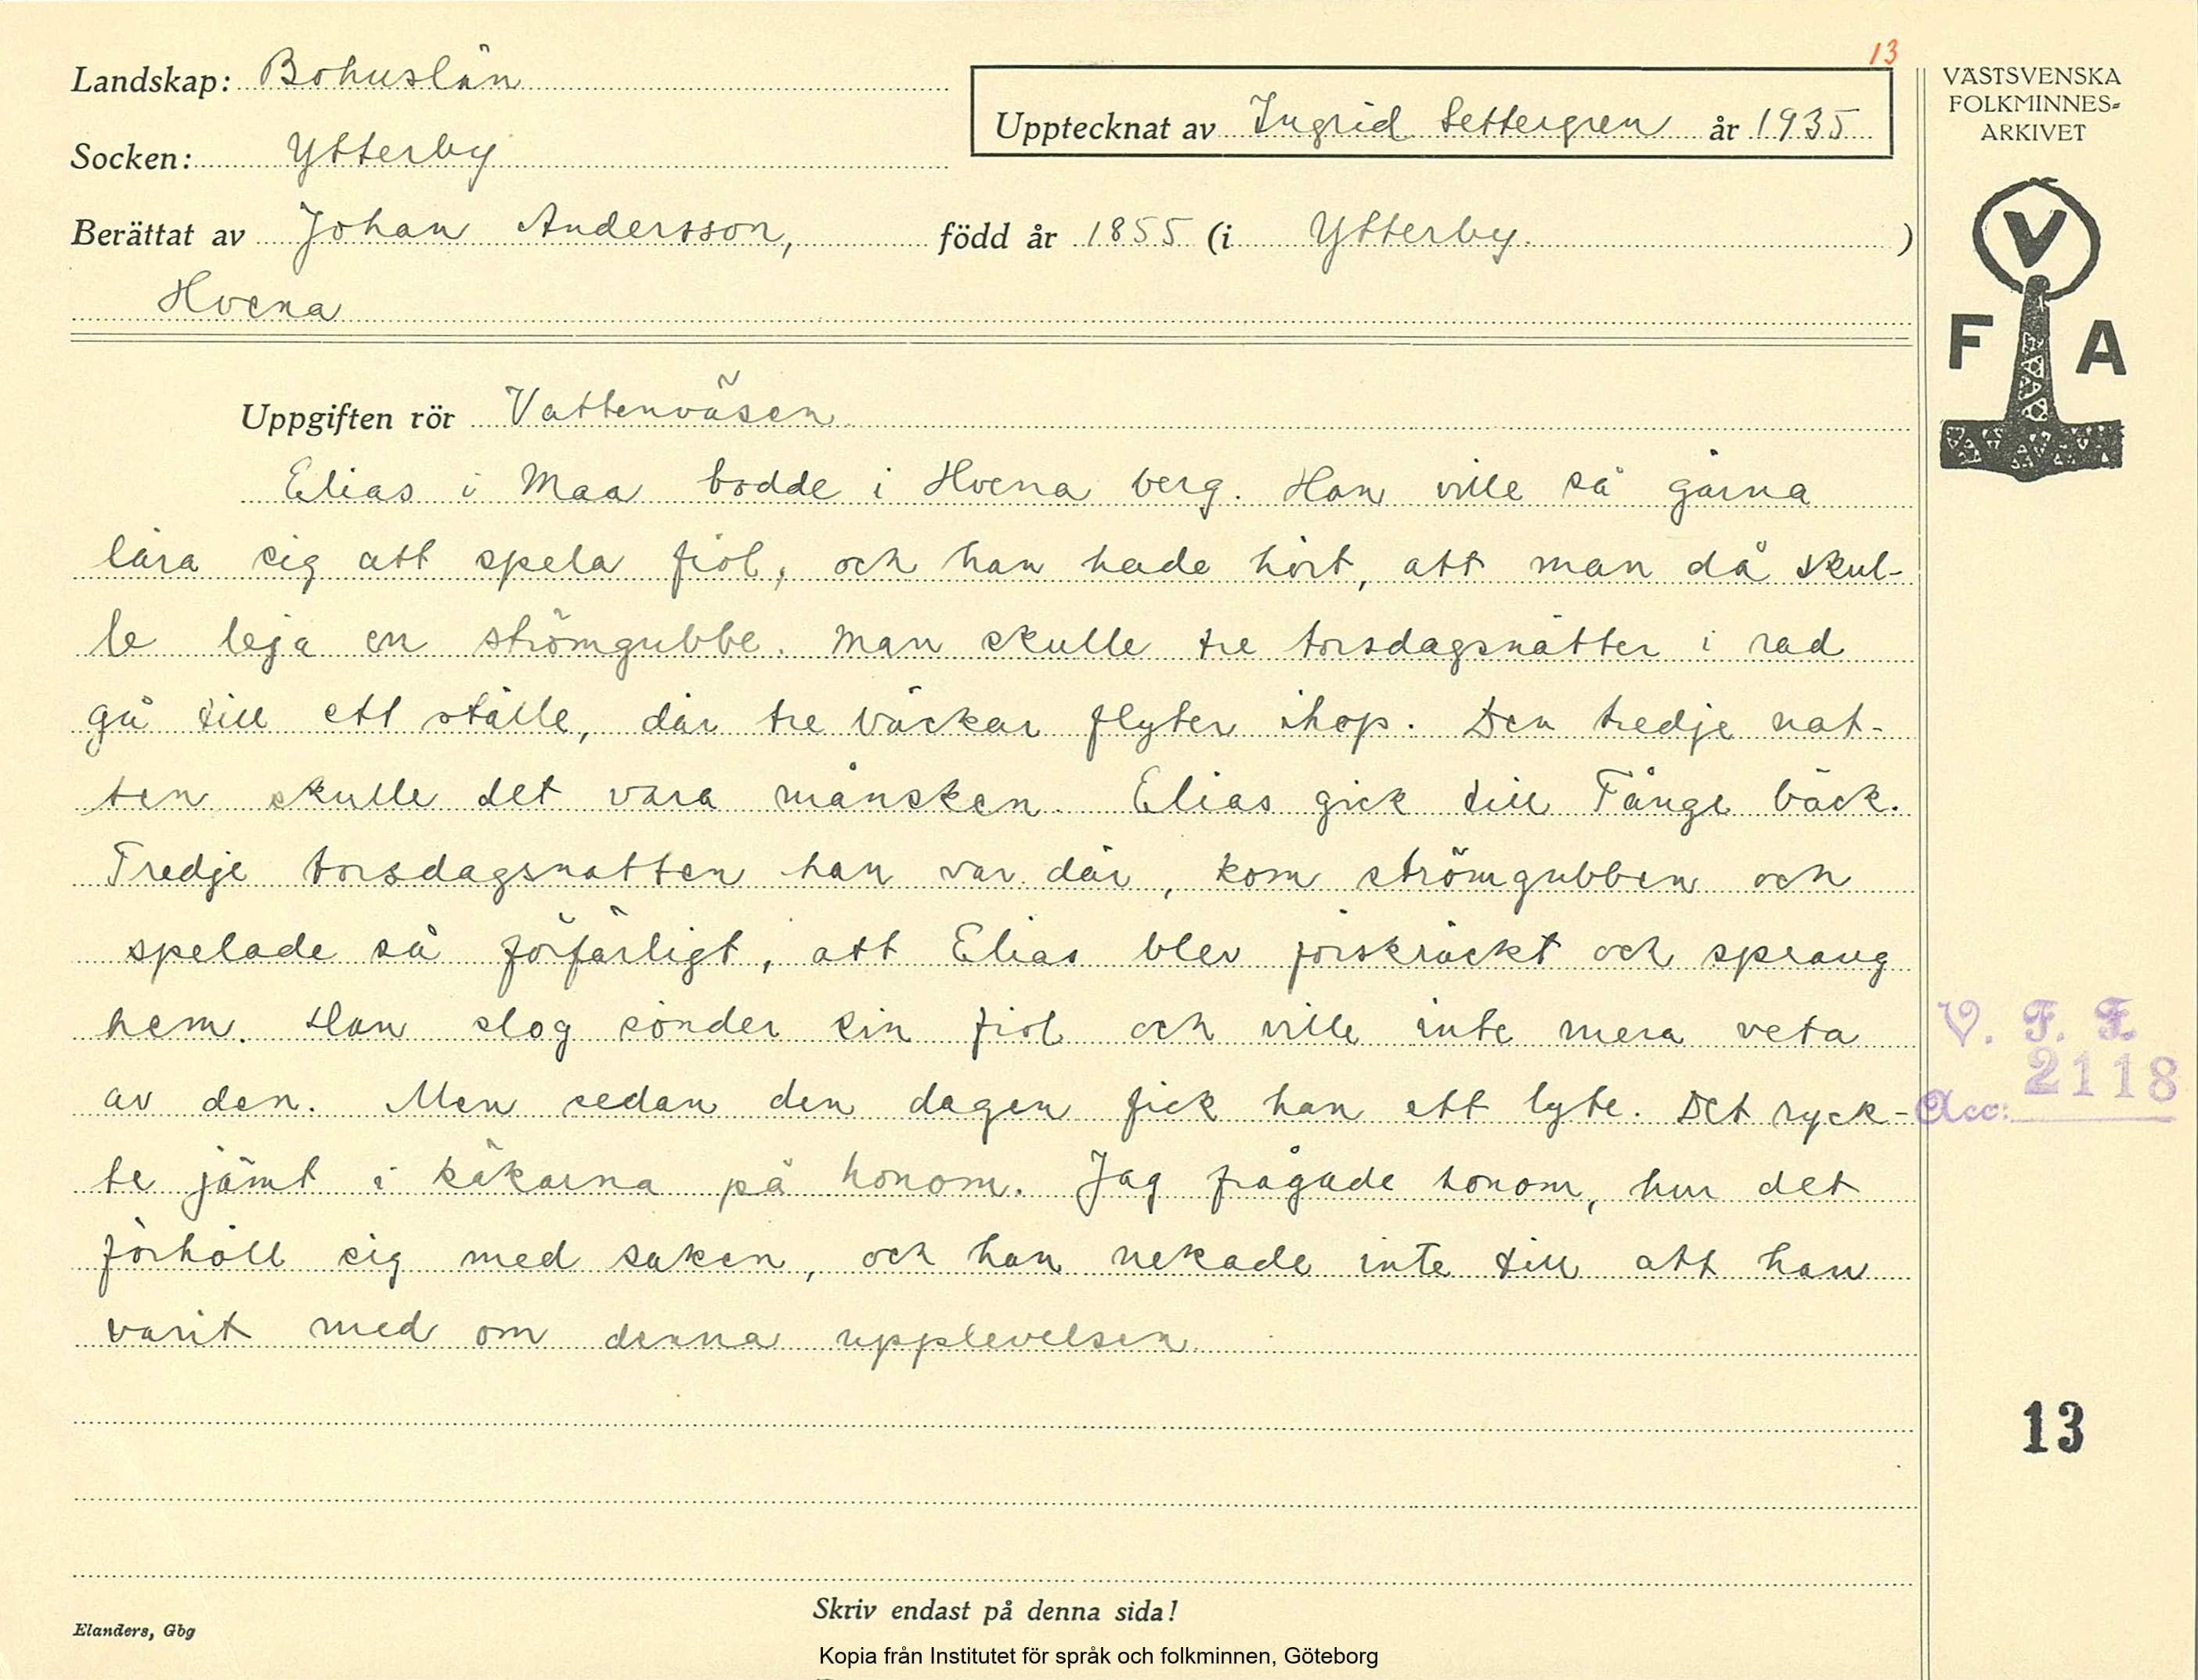 13
Landskap: Bohuslän
Upptecknat av Ingrid Settergren år 1935
VÄSTSVENSKA
FOLKMINNES-
ARKIVET
Socken: Ytterby
Berättat av Johan Andersson, född år 1855 (i Ytterby )
Hvena
V
F A
Uppgiften rör Vattenväsen
Elias i Maa bodde i Hvena berg. Han ville så gärna
lära sig att spela fiol, och han hade hört, att man då skul-
le leja en strömgubbe. Man skulle tre torsdagsnätter i rad
gå till ett ställe, där tre bäckar flyter ihop. Den tredje nat-
ten skulle det vara månsken. Elias gick till Tånge bäck.
Tredje torsdagsnatten han var där, kom strömgubben och
spelade så förfärligt, att Elias blev förskräckt och sprang
hem. Han slog sönder sin fiol och ville inte mera veta
av den. Men sedan den dagen fick han ett lyte. Det ryck-
te jämt i käkarna på honom. Jag frågade honom, hur det
förhöll sig med saken, och han nekade inte till att han
varit med om denna upplevelsen.
V. F. F.
2118
Acc:
13
Skriv endast på denna sida!
Elanders, Gbg
Kopia från Institutet för språk och folkminnen, Göteborg